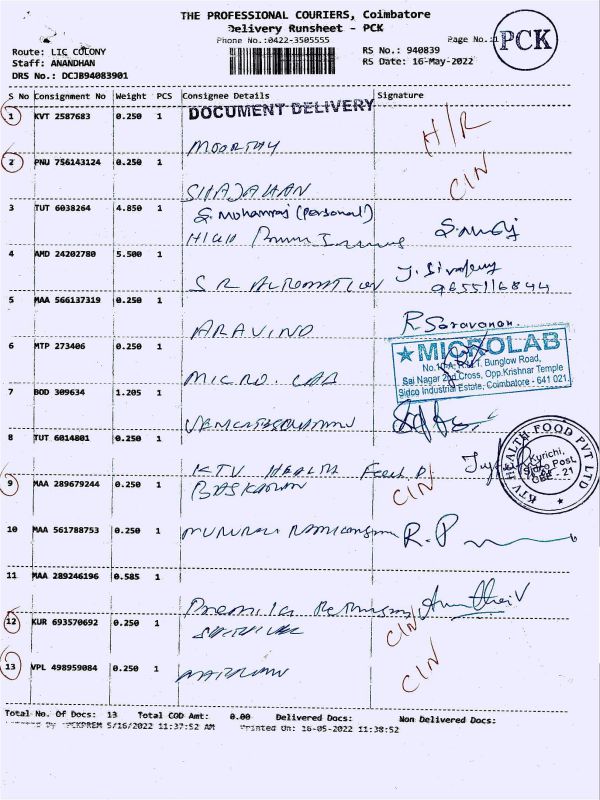 THE PROFESSIONAL COURIERS, Coimbatore
Delivery Runsheet - PCK
Phone No.:0422-3505555
Page No.:1
PCK
Route: LIC COLONY
RS No.: 940839
Staff: ANANDHAN
RS Date: 16-May-2022
DRS No.: DCJB94083901
S No Consignment No Weight PCS Consignee Details Signature
DOCUMENT DELIVERY
1 KVT 2587683 0.250 1
MOORTHY H/R
2 PNU 756143124 0.250 1
SHAJAHAN CIN
3 TUT 6038264 4.850 1
S. Mohanraj (Personal)
HIGH
4 AMD 24202780 5.500 1
S R AUTOMATION
9655116844
5 MAA 566137319 0.250 1
ARAVIND R. Saravanan.
6 MTP 273406 0.250 1
MICRO. LAB
MICROLAB
Bunglow Road,
Sai Nagar 2nd Cross, Opp.Krishnar Temple
Sidco Industrial Estate, Coimbatore - 641 021.
7 BOD 309634 1.205 1
8 TUT 6014801 0.250 1
KTV HEALTH Food P
KTV HEALTH FOOD PVT LTD
Kurichi,
Sidco Post,
CBE - 21
9 MAA 289679244 0.250 1
BASKARAN CIN
10 MAA 561788753 0.250 1
R. P
11 MAA 289246196 0.585 1
12 KUR 693570692 0.250 1
CIN
13 VPL 498959084 0.250 1
CIN
Total No. Of Docs: 13 Total COD Amt: 0.00 Delivered Docs: Non Delivered Docs:
By PCKPREM 5/16/2022 11:37:52 AM Printed On: 16-05-2022 11:38:52